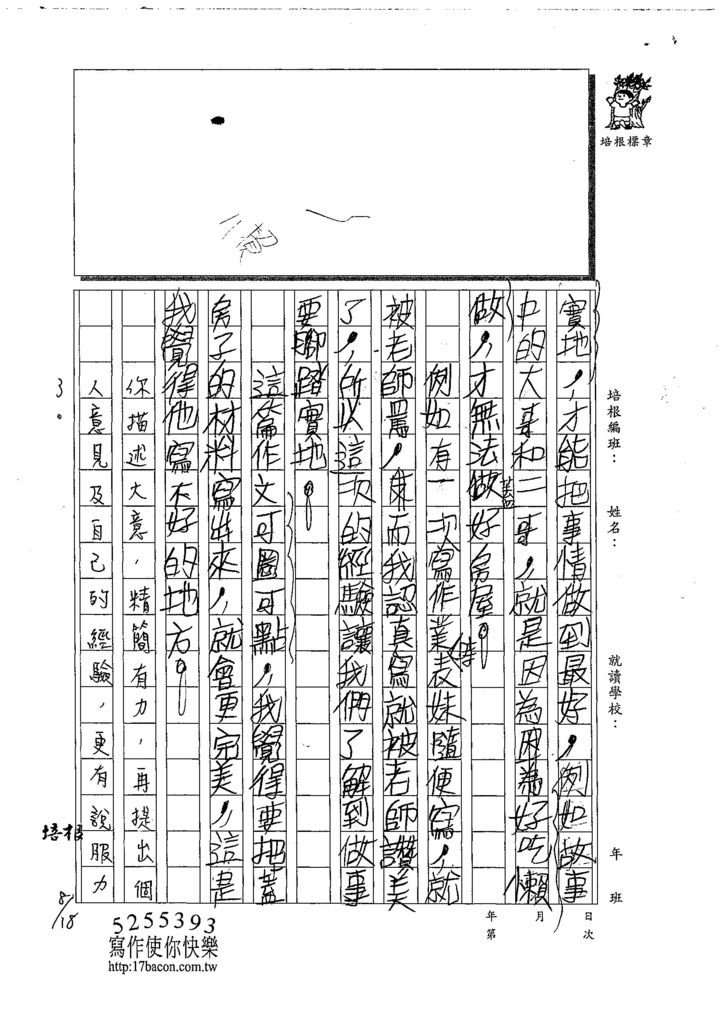 培根標章
培根編班：
姓名：
就讀學校：
年 班
年 月 日
第 次
實地，才能把事情做到最好，例如故事
中的大哥和二哥，就是因為因為好吃懶
做，才無法做好房屋。
蓋
例如有一次寫作業表妹隨便寫，就
時
被老師罵，而我認真寫就被老師讚美
了，所以這一次的經驗讓我們了解到做事
要腳踏實地。
這篇作文可圈可點，我覺得要把蓋
房子的材料寫出來，就會更完美，這是
我覺得他寫不好的地方。
你描述大意，精簡有力，再提出個
人意見及自己的經驗，更有說服力
3。
培根
8/18
5255393
寫作使你快樂
http:17bacon.com.tw